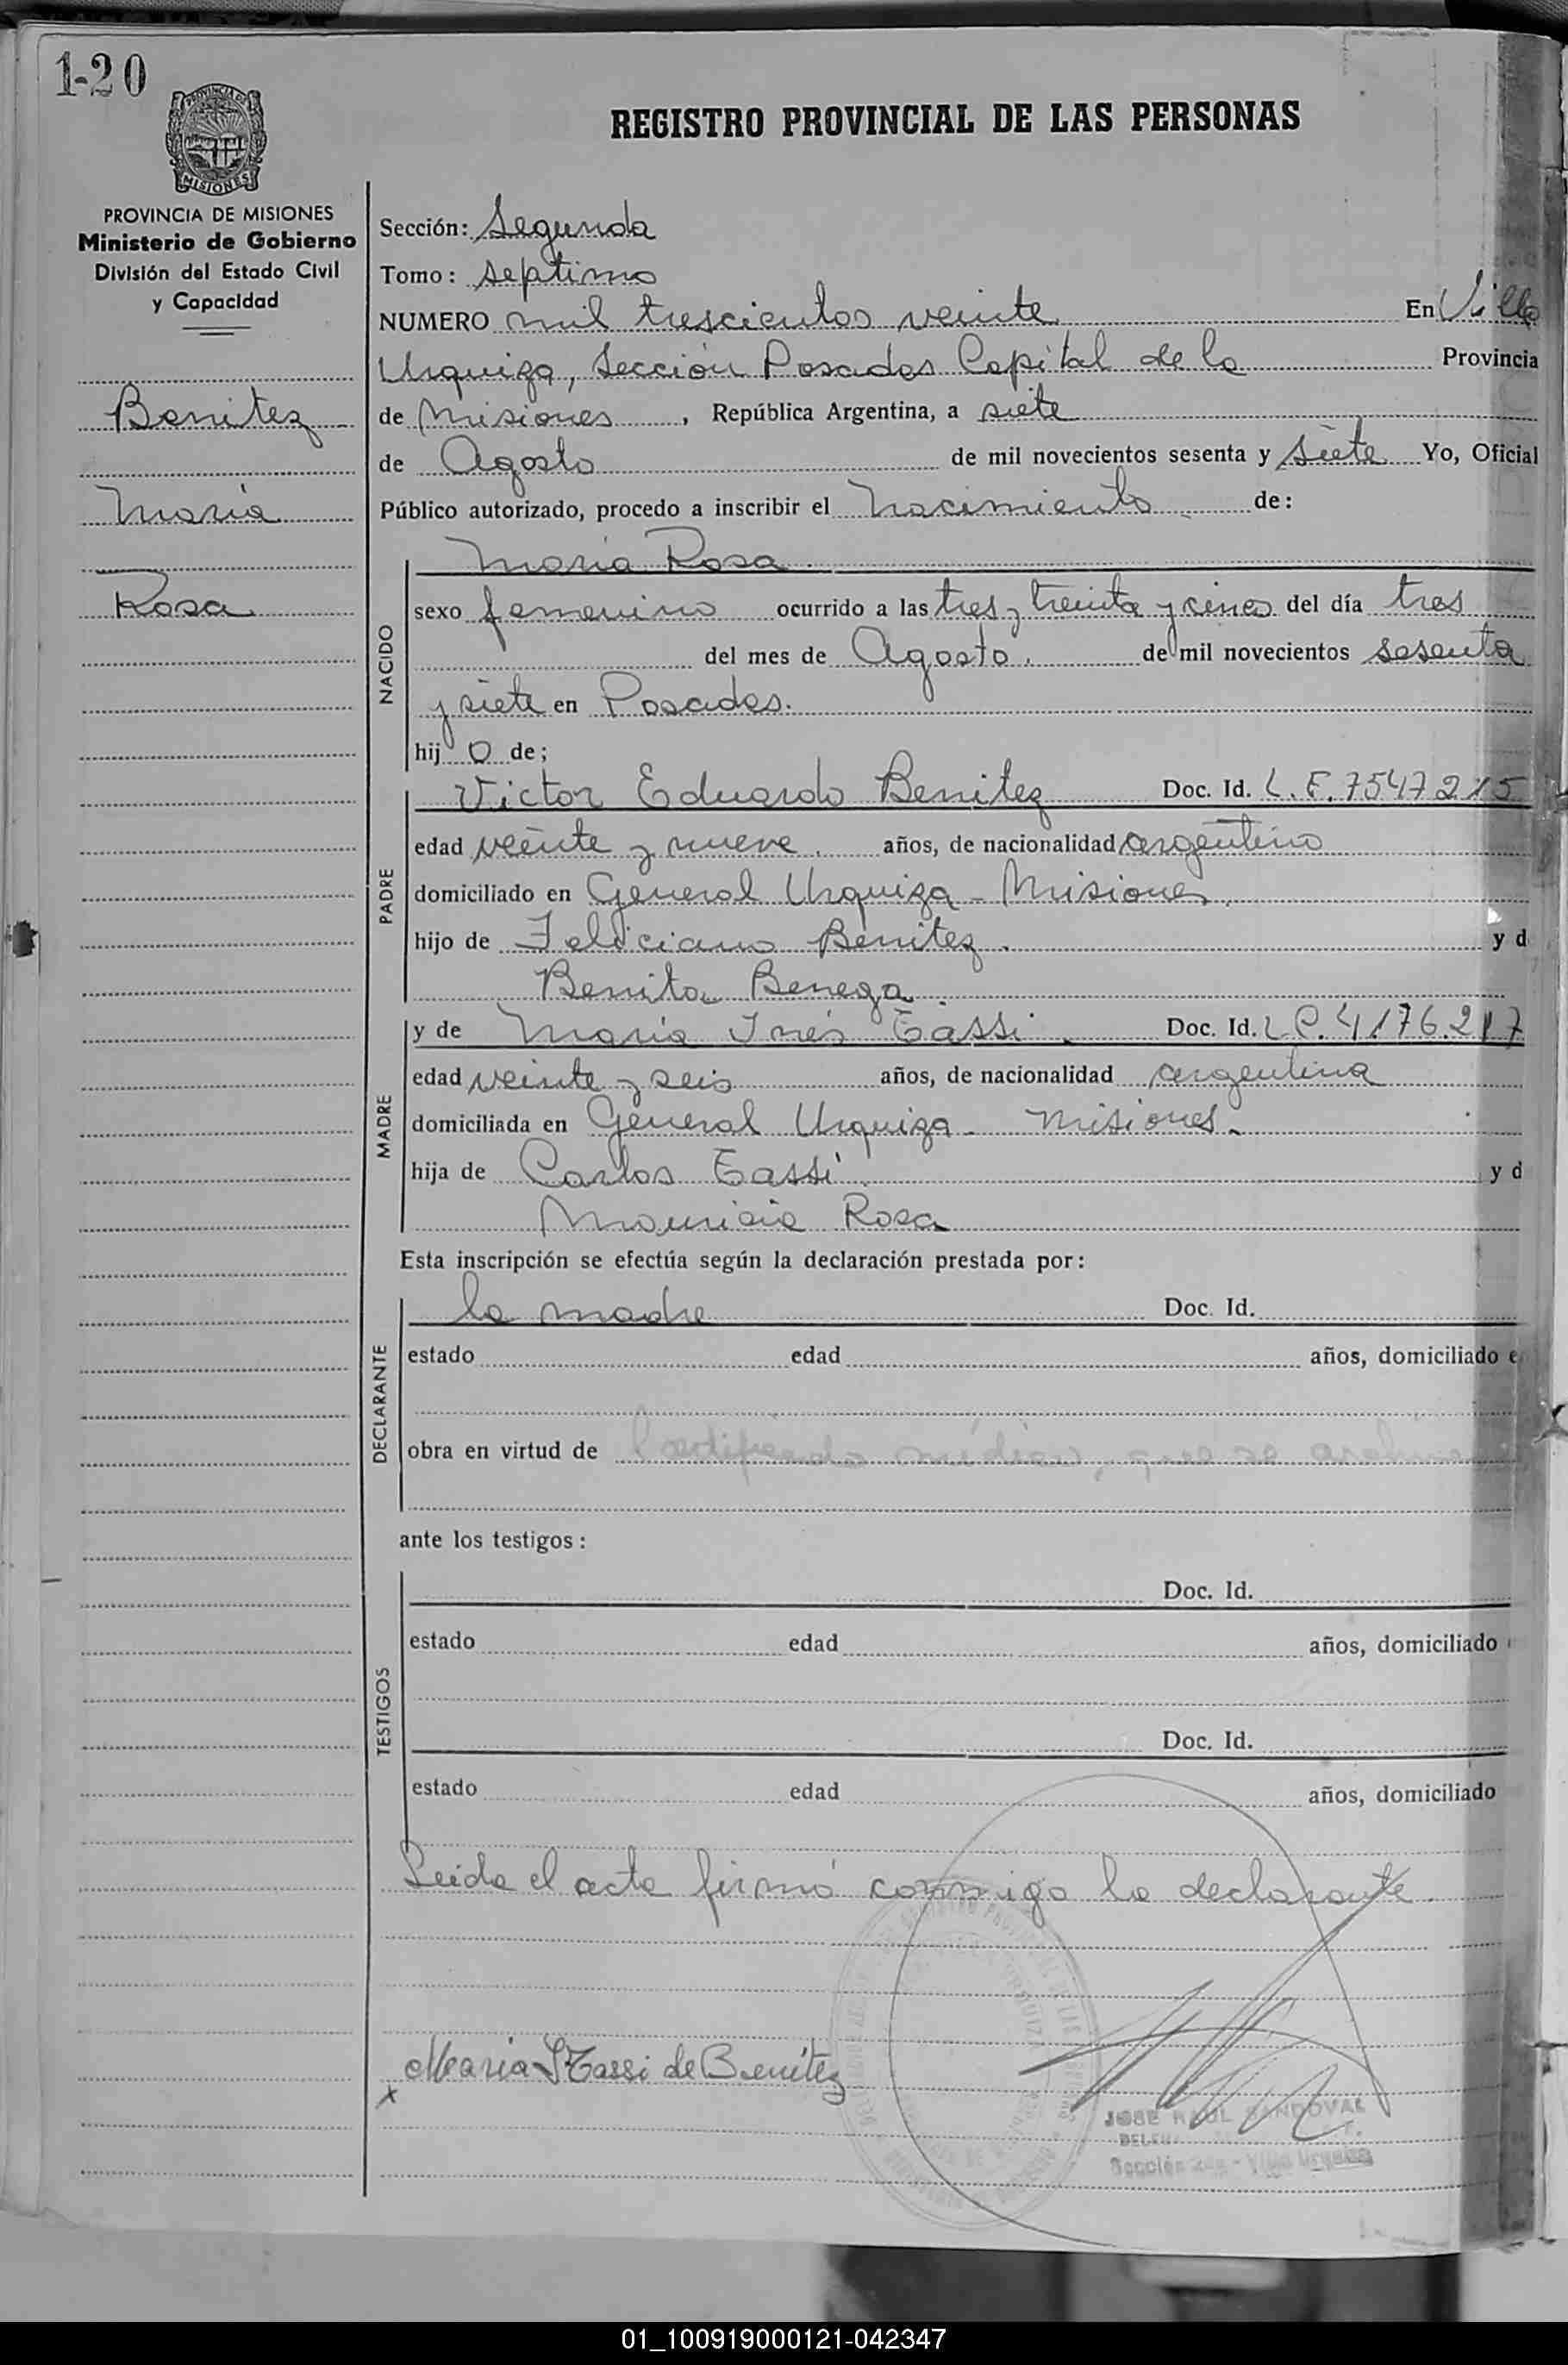 1-20
PROVINCIA DE MISIONES
MISIONES
PROVINCIA DE MISIONES
Ministerio de Gobierno
División del Estado Civil
y Capacidad
Benitez
Maria
Rosa
REGISTRO PROVINCIAL DE LAS PERSONAS
Sección: Segunda
Tomo: septimo
NUMERO mil trescientos veinte En Villa
Urquiza, Sección Posadas Capital de la Provincia
de Misiones, República Argentina, a siete
de Agosto de mil novecientos sesenta y siete Yo, Oficial
Público autorizado, procedo a inscribir el Nacimiento de:
NACIDO
Maria Rosa
sexo femenino ocurrido a las tres y treinta y cinco del día tres
del mes de Agosto. de mil novecientos sesenta
y siete en Posadas.
hij o de;
PADRE
Victor Eduardo Benitez Doc. Id. L.E. 7547215
edad veinte y nueve. años, de nacionalidad argentino
domiciliado en General Urquiza - Misiones.
hijo de Feliciano Benitez. y d
Benita Benega.
MADRE
y de Maria Inés Tassi. Doc. Id. L.C. 4.176.217
edad veinte y seis años, de nacionalidad argentina
domiciliada en General Urquiza - Misiones.
hija de Carlos Tassi y d
Mauricia Rosa
Esta inscripción se efectúa según la declaración prestada por:
DECLARANTE
la madre Doc. Id.
estado edad años, domiciliado e
obra en virtud de Certificado médico, que se archiva
ante los testigos:
TESTIGOS
Doc. Id.
estado edad años, domiciliado
Doc. Id.
estado edad años, domiciliado
Leida el acta firmó conmigo la declarante.
Maria I Tassi de Benítez
x
JOSE RAUL SANDOVAL
Sección 2da - Villa Urquiza
01_100919000121-042347